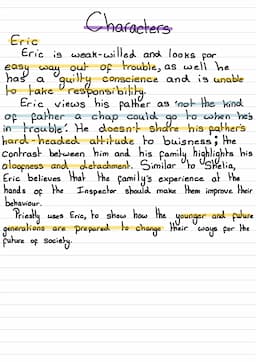 Characters
Eric
Eric is weak-willed and looks for
easy way out of trouble, as well he
has a guilty conscience and is unable
to take responsibility.
Eric views his father as 'not the kind
of father a chap could go to when he's
in trouble'. He doesn't share his father's
hard-headed attitude to buisness; the
contrast between him and his family highlights his
aloofness and detatchment. Similar to Shelia,
Eric believes that the family's experience at the
hands of the Inspector should make them improve their
behaviour.
Priestly uses Eric, to show how the younger and future
generations are prepared to change their ways for the
future of society.